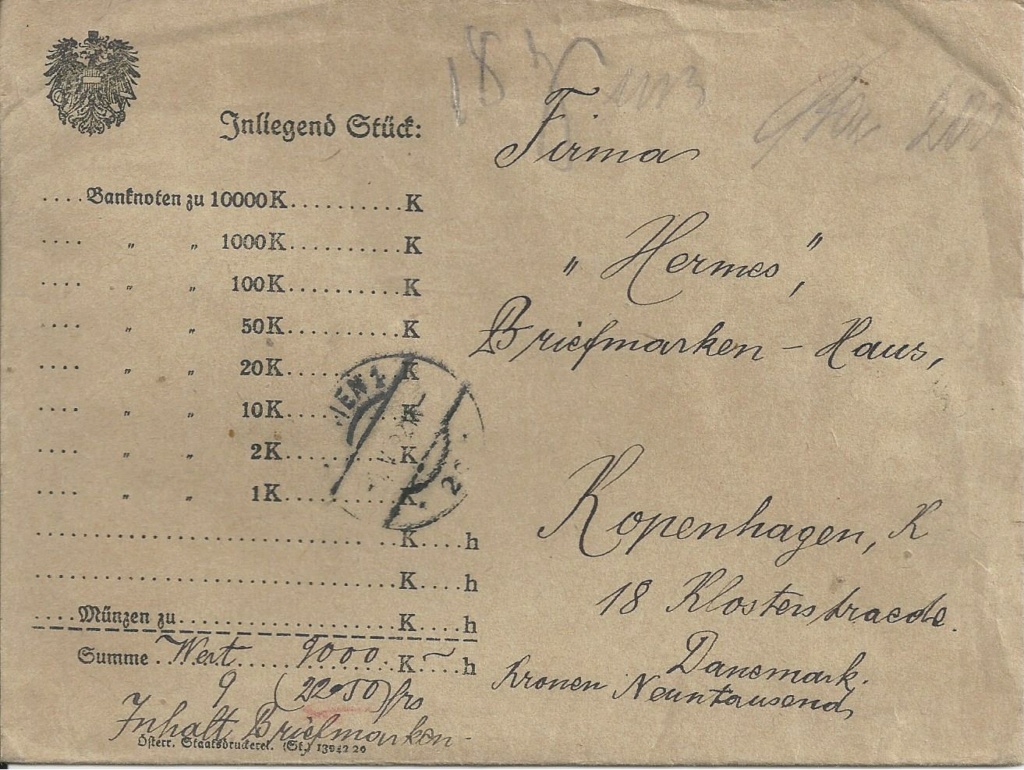 Inliegend Stück:
.... Banknoten zu 10000 K .......... K
.... „ „ 1000 K .......... K
.... „ „ 100 K .......... K
.... „ „ 50 K .......... K
.... „ „ 20 K .......... K
.... „ „ 10 K .......... K
.... „ „ 2 K .......... K
.... „ „ 1 K .......... K
K .... h
K .... h
.... Münzen zu .......... K .... h
Summe . Wert 9000. K — h
9 (22·50) frs
Inhalt Briefmarken
Österr. Staatsdruckerei. (St.) 13942 20
WIEN 1
Firma
„Hermes",
Briefmarken - Haus,
Kopenhagen, K
18 Klosterstraede.
Danemark.
Kronen Neuntausend